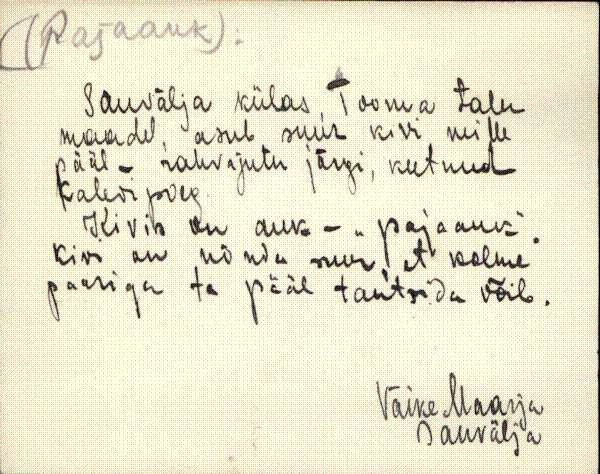 (Pajaauk):
Sauvälja külas, Tooma talu
maadel, asub suur kivi mille
pääl – rahvajutu järgi, keetnud
Kalevipoeg.
Kivis on auk – „pajaauk".
Kivi on nõnda suur, et kolme
paariga ta pääl tantsida võib.
Väike Maarja
Sauvälja